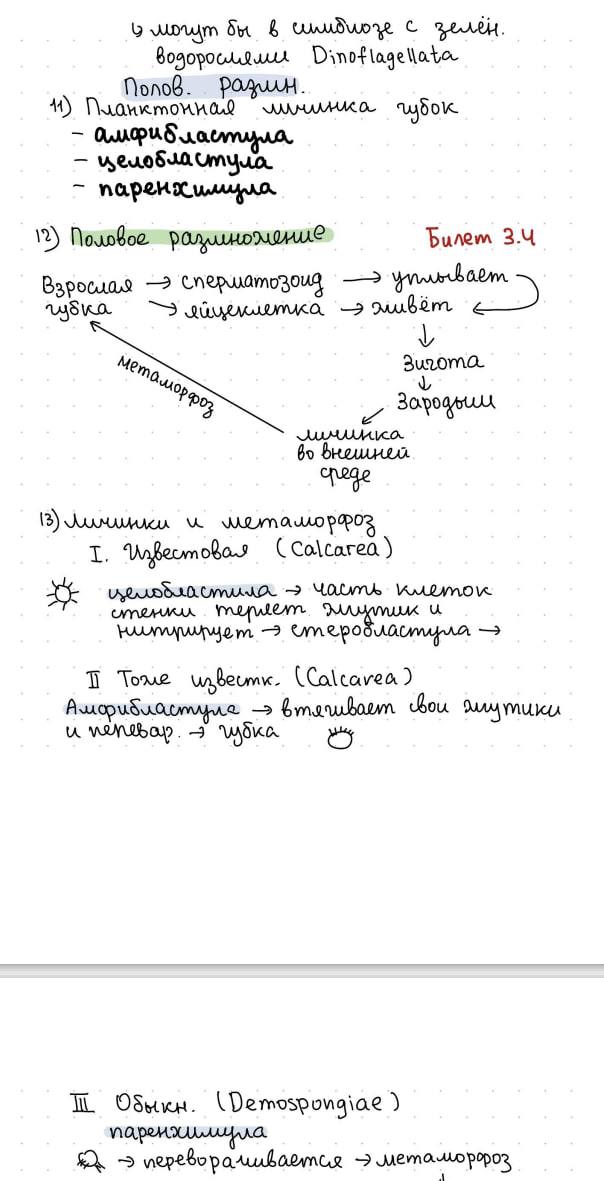 ↳ могут бы в симбиозе с зелён.
водорослями Dinoflagellata
Полов. размн.
11) Планктонная личинка губок
– амфибластула
– целобластула
– паренхимула
12) Половое размножение
Билет 3.4
Взрослая → сперматозоид → уплывает
губка → яйцеклетка → живёт
↓
Зигота
↓
Зародыш
метаморфоз
личинка
во внешней
среде
13) личинки и метаморфоз
I. Известовая (Calcarea)
целобластила → часть клеток
стенки теряет жгутик и
нитрирует → стеробластула →
II Тоже известк. (Calcarea)
Амфибластула → втягивает свои жгутики
и пепевар. → губка
III Обыкн. (Demospongiae)
паренхимула
→ переворачивается → метаморфоз